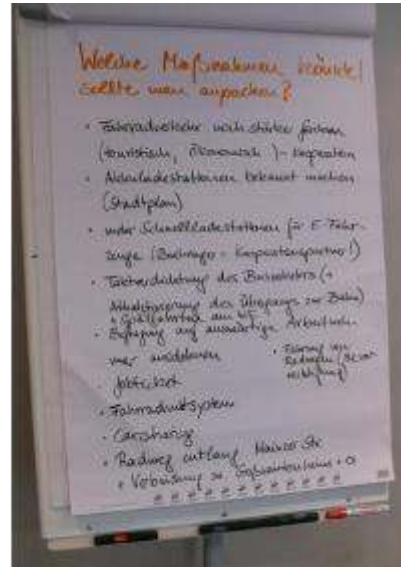 Welche Maßnahmen könnte/
sollte man anpacken?
• Fahrradverkehr noch stärker fördern
(touristisch, ökonomisch) - Kooperation
• Akkuladestationen bekannt machen
(Stadtplan)
• mehr Schnellladestationen für E-Fahr-
zeuge ( - Kooperationspartner!)
• Taktverdichtung des Busverkehrs (+
des Übergangs zur Bahn)
+ am
• auf auswärtige Arbeitneh-
mer ausdehnen
• Jobticket
• von
Radwegen
• Fahrradmietsystem
• Carsharing
• Radweg entlang Mainzer Str.
+ Verbindung zw. + O